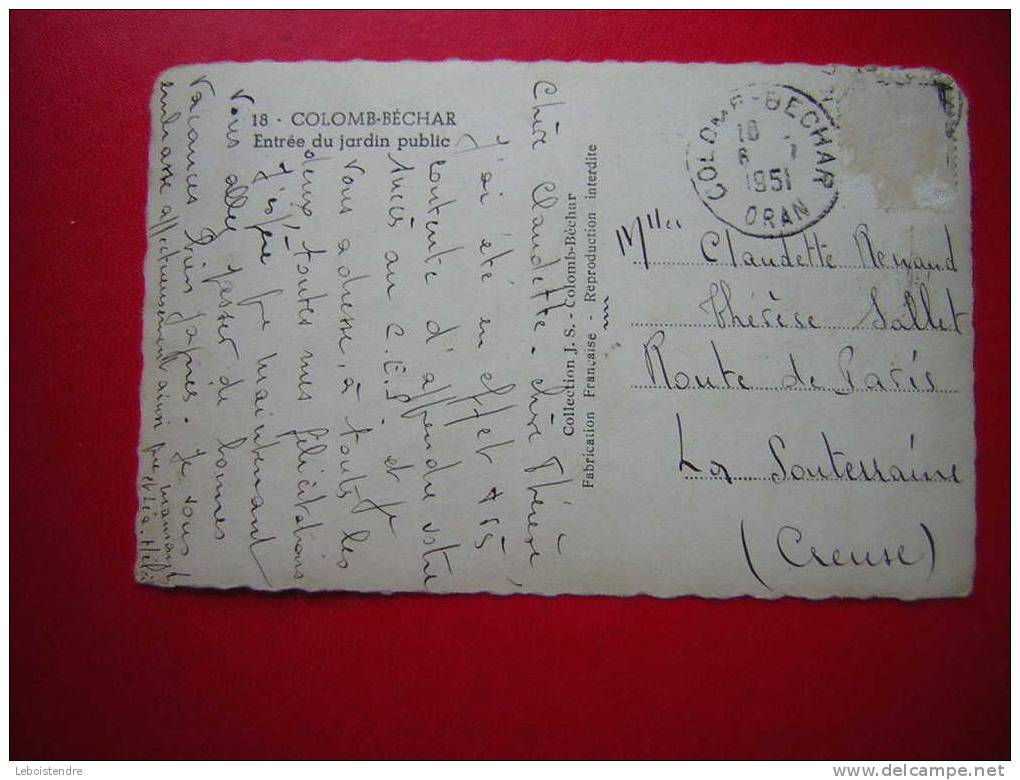 18 - COLOMB-BÉCHAR
Entrée du jardin public
Chère Claudette - chère Thérèse,
J'ai été en effet très
contente d'apprendre votre
succès au C.E.P. et je
vous adresse, à toutes les
deux toutes mes félicitations
J'espère que maintenant
vous allez passer de bonnes
vacances bien gagnées. Je vous
embrasse affectueusement ainsi que maman
et Léa.
Collection J. S. - Colomb-Béchar
Fabrication Française - Reproduction interdite
COLOMB-BECHAR
18
1951
ORAN
Mlles Claudette Renaud
Thérèse Sallet
Route de Paris
La Souterraine
(Creuse)
Leboistendre
www.delcampe.net